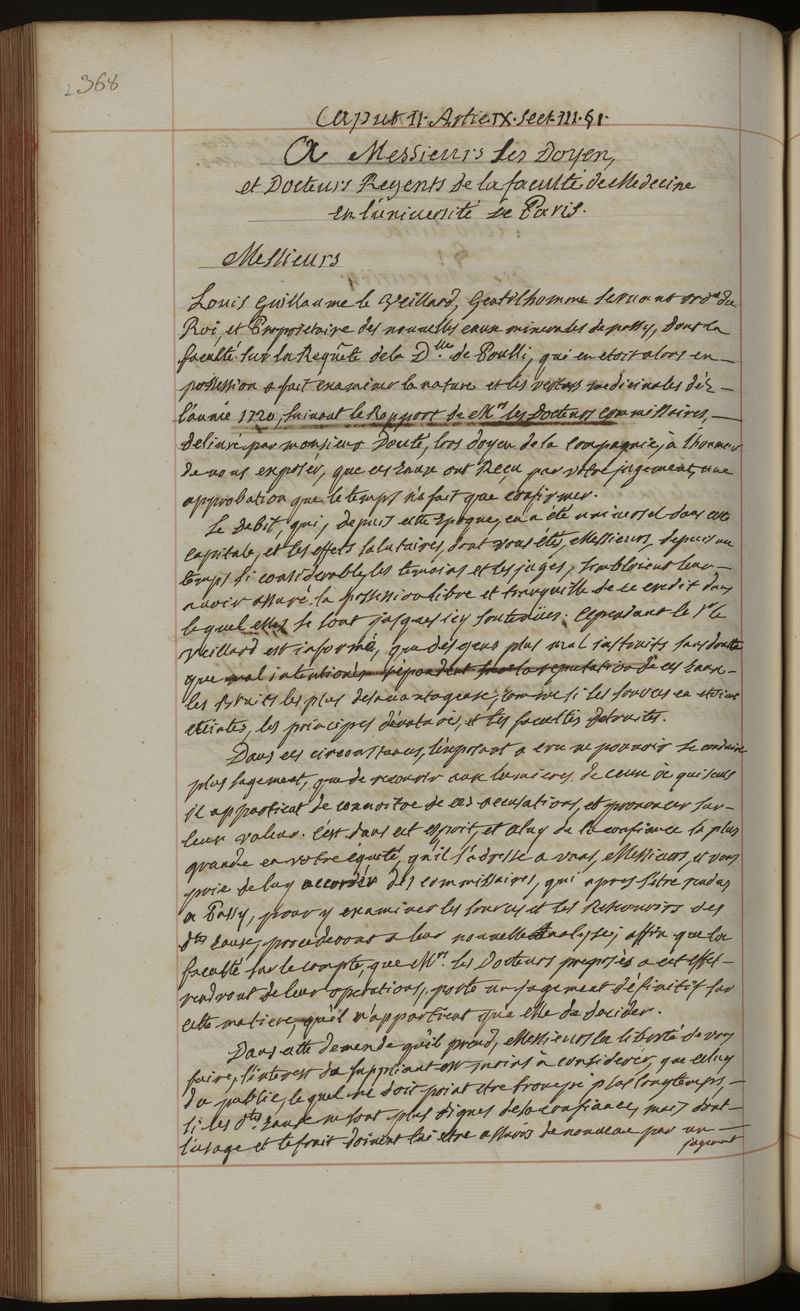 2368
Caput II. Artic. IX. Sect. III. §1.
A Messieurs Les Doyen,
et Docteurs Regents de la faculté de Medecine
en l'université de Paris.
Messieurs
Louis Guillaume le Veillard, Gentilhomme servant ord.re du
Roi, et Proprietaire des nouvelles eaux minerales de passy, dont la
faculté sur la Requête dela D.lle de Poulli, qui en etoit alors en
possession a fait examiner la nature et les vertus medicinales dès
l'année 1720, suivant le Rapport de M.rs les Docteurs commissaires,
delivré par monsieur Douté, lors doyen de la compagnie, a l'honneur
de vous exposer, que ces Eaux ont Reçu par votre jugement, une
approbation que le temps n'a fait que confirmer.
Le Debit, qui, depuis cette Epoque, en a été universel dans cette
Capitale, et les effets salutaires, dont vous êtes, Messieurs, depuis un
temps si considerable les temoins et les juges, sembloient leur
avoir assuré la possession libre et tranquille de ce credit dans
lequel elles se sont jusques icy soutenües. Cependant le S.r le
Veillard est informé, que des gens plus mal instruits sans doutte
que mal intentionés repandent sur la reputation de ces Eaux
les bruits les plus desavantageux, comme si les sources en etoient
eteintes, les principes dénaturés, et les facultés detruites.
Dans ces circonstances, l'exposant a cru ne pouvoir se conduire
plus sagement, que de recourir aux lumieres de ceux à qui seuls
il appartient de connoitre de ces accusations, et prononcer sur
leur valeur. C'est dans cet esprit, et celuy de la confiance la plus
grande en votre équité, qu'il s'adresse a vous, Messieurs, et vous
prie de luy accorder des commissaires, qui apres s'être rendus
a Passy, pour y examiner les sources et les Reservoirs des
d.tes Eaux, procederont a leur nouvelle Analyse; affin que la
faculté sur le compte, que M.rs les Docteurs preposés a cet effet
rendront de leur operations, porte un jugement définitif sur
cette matiere, qu'il n'appartient qu'a elle de decider.
Dans cette demande qu'il prend, Messieurs la liberté de vous
faire, l'interest du suppliant est moins à considerer, que celuy
du public, lequel ne doit point etre trompé plus longtemps,
si les d.tes Eaux ne sont plus dignes de sa confiance, mais dont
l'usage et le fruit doivent lui etre assurés de nouveau par un
jugement